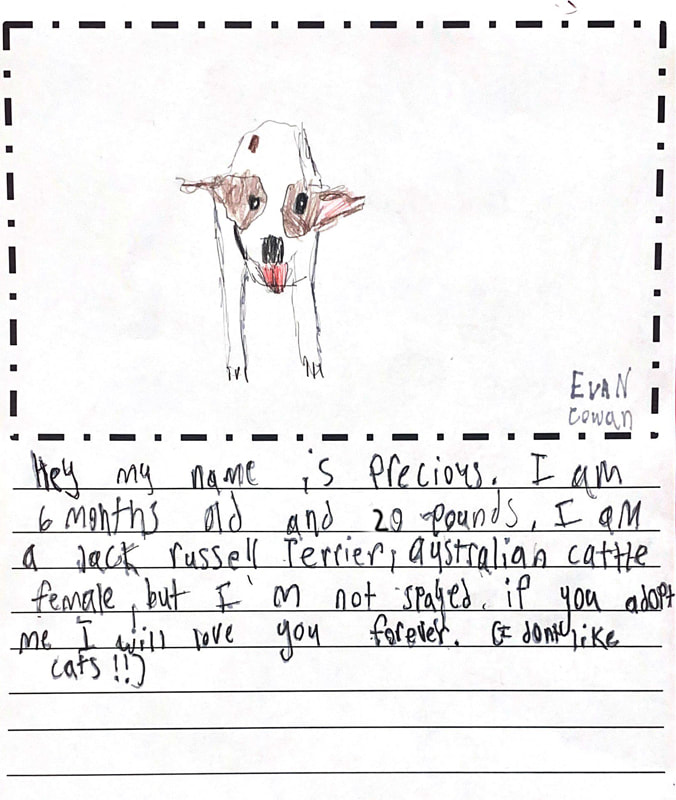 EVAN
Cowan
Hey my name is Precious. I am
6 months old and 20 pounds. I am
a Jack russell Terrier, australian cattle
female, but I'm not spayed. if you adopt
me I will love you forever. (I dont like
cats!!)